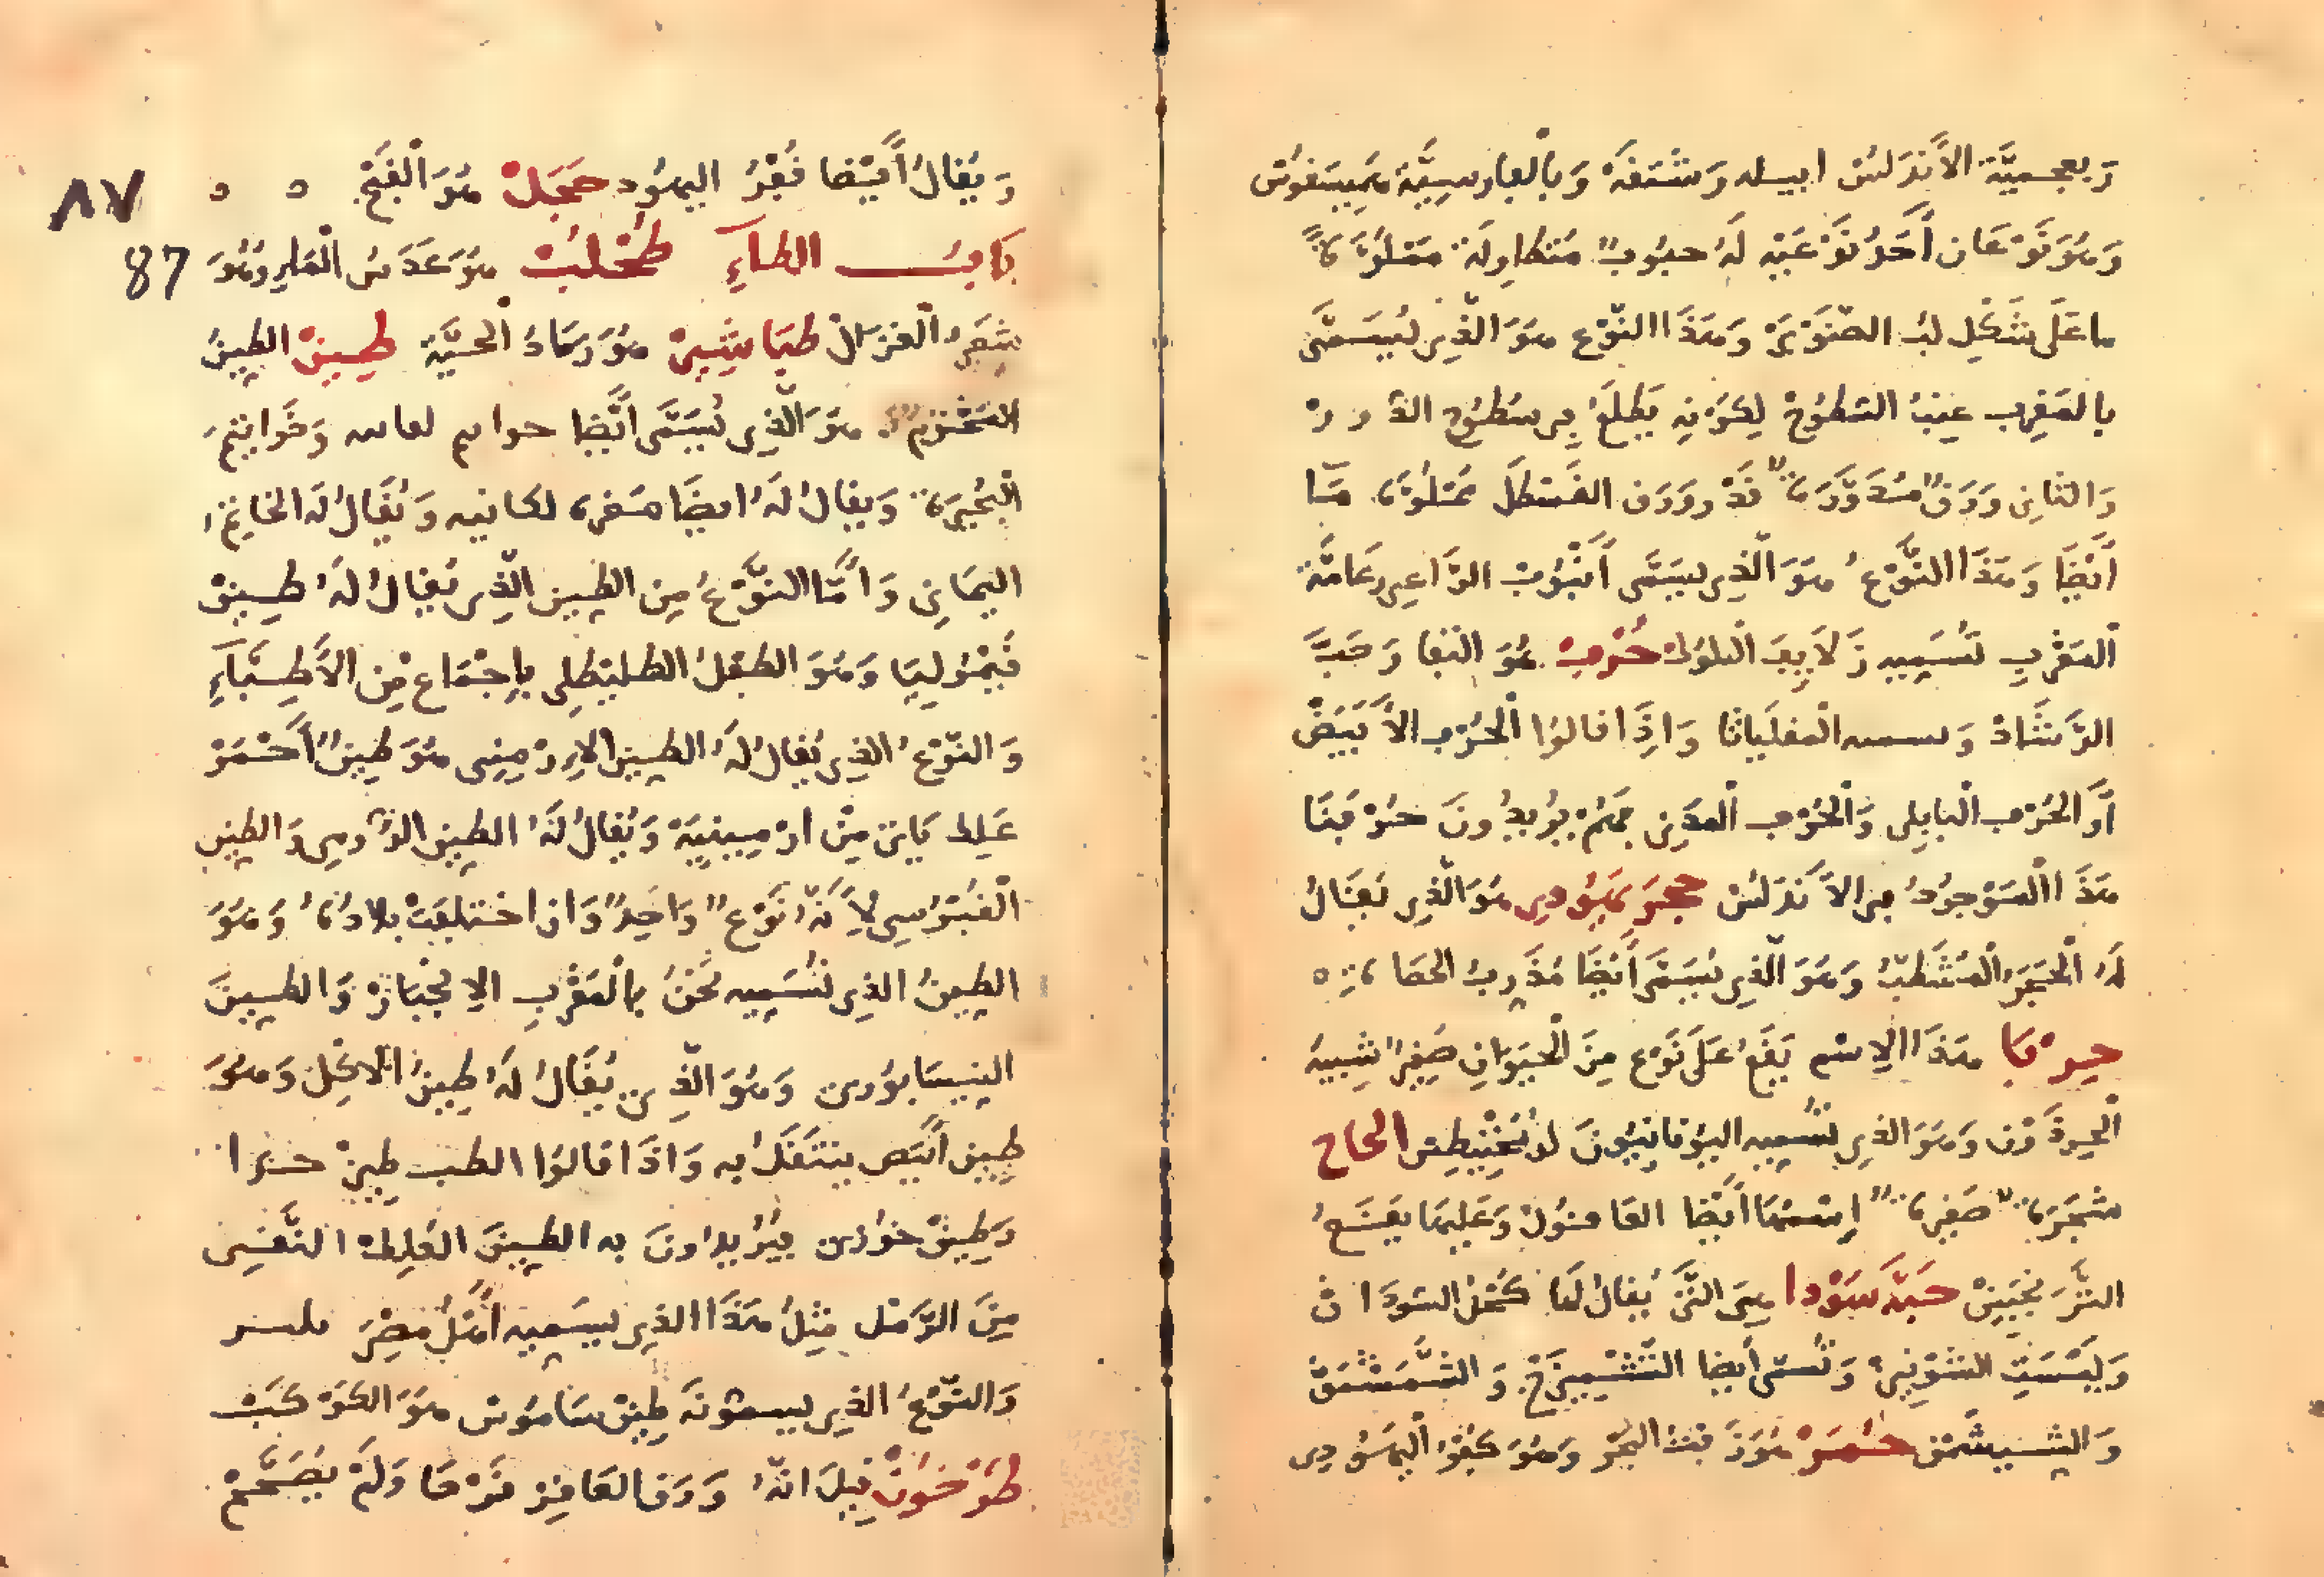 وَبعجميَّة الأَندَلس ابيله وَشَنفَة وَبالفارسيَّة هميسفوش
وَهُوَ نَوْعَان أَحَدُ نَوْعَيْه لَهُ حبُوب مُتطاولَة مَمْلُوَّةٌ
ما عَلَى شَكْل لبّ الصّنَوْبَر وَهَذَا النَّوْع هوَ الَّذِي يُسَمَّى
بالمَغْرب عِنَبُ السّطُوحْ لِكَوْنِهِ يَطْلَعُ فِي سُطُوحِ الدُّورْ
وَالثاني وَرَقٌ مُدَوَّرَةٌ قَدْر وَرَق العَدَس مَمْلُوَّة مَا
أَيْضًا وَهَذَا النَّوْعُ هوَ الَّذِي يسَمَّى أُنْبُوبْ الرَّاعِي وَعَامَّة
المَغْرب تُسَمِّيه زَلَايِف المُلوك حُرْف هُوَ الثفا وَحَبُّ
الرَّشَادْ وَ المقلياثا وَاذِا قالوُا الحُرْف الأَبْيَضْ
أَوِ الحُرْف البابلي وَالحُرْف المَدَنِي فَهُمْ يُرِيدُونَ حُرْفَنَا
هَذَا المَوْجُودُ في الأَنْدَلسْ حجَر يَهُودِي هُوَ الَّذِي يُقَالُ
لَهُ الْحَجَرُ الْمُشَطَّبُ وَهُوَ الَّذِي يُسَمَّى أَيْضًا مُذَوِّبُ الحَصَاةِ
حِرْبَا هَذَا الاِسْم يَقَعُ عَلَى نَوْعٍ مِنَ الْحَيَوانِ صَغِيرٌ شبيهُ
الْحِرْذَوْن وَهُوَ الَّذِي تُسَمِّيه اليُونانِيُّونَ الحاج
شجَرَةٌ صَغِيرَةٌ اِسْمُهَا أَيْضًا العَاقُول وَعَلَيهَا يَقَعُ
التَّرَنجَبِينْ حَبَّة سَوْدا هِيَ الَّتِي يُقَالُ لَهَا كُحْلُ السّودَانْ
وَلَيْسَتِ الشّونِيزْ وَتُسَمَّى أيضا التّشْمِيزَجْ وَالتّشَمْشَمَقْ
وَالبشمشق حُمَرْ هُوَ قفر اليَهُودِي
وَيُقالُ أَيْضًا قُفْرُ اليهُود حَجَلْ هُوَ الْقَبْج
٨٧
بَابُ الطاءِ طُحْلُبْ هوَ عَدَسُ الْمَاءِ وَهُوَ
87
شَعَرُ الْغزَال طَبَاشِيرْ هُوَ رَمَادُ الْحَيَّة طِينْ الطِينُ
المَخْتُومُ هوَ الَّذِي يُسَمَّى أَيْضًا خواتم وَخَوَاتِيمَ
البُحَيْرَة وَيقالُ لَهُ ايضًا مَغرة وَيُقَالُ لَهُ الخَاتِمُ
اليَمَانِي وَأَمَّا النَّوْعُ مِن الطِين الَّذِي يُقَالُ لَهُ طِينْ
قَيْمُولِيَا وَهُوَ الطفْلُ الطليطلِي بإِجْمَاع مِن الأَطِبَّاءِ
وَالنَّوْعُ الَّذِي يُقَالُ لَهُ الطِين الاِرْمِينِي هُوَ طِينٌ أَحْمَرْ
غَلِيظ يَاتِي مِنْ ارْمِينِيَةْ وَيُقالُ لَهُ الطِين الرُّومِي وَالطِين
القُبْرُسِي لِأَنَّهُ نَوْعٌ وَاحِدٌ وَان اختَلَفَتْ بلادُهُ وَهُوَ
الطِينُ الَّذِي نُسَمِّيه نَحْنُ بالْمَغْربِ الاِنْجبَارْ وَالطِينَ
النِيسَابُورِي وَهُوَ الَّذِي يُقَالُ لَهُ طِينُ الأَكْل وَهُوَ
طِينٌ أَبْيَض يُتَنَقَّلُ به وَاذَا قالوُا الطب طِينْ حُر
وَطِينْ خوزي فيُرِيدُونَ به الطِينَ الغلِيظ النَّقِي
مِنَ الرَّمْل مِثْلُ هَذَا الَّذِي يُسَمِّيه أَهْلُ مِصْرَ
وَالنَّوْعُ الَّذِي يسمُّونَهُ طِينْ سَامُوش هُوَ الكَوْكَبْ
طَرْخُونْ قِيلَ انَّهُ وَرَقُ العَاقِرْ قَرْحَا وَلَمْ يَصِحّ